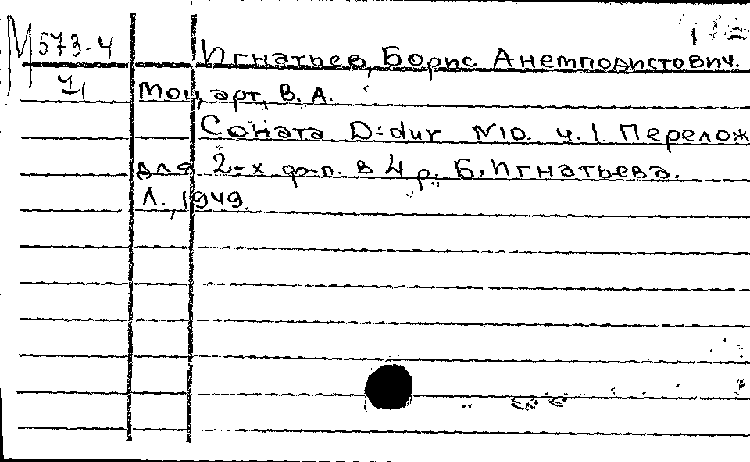 М 573-4 Игнатьев, Борис Анемподистович.
71 Моцарт, В. А.
Соната D-dur №10. ч. 1 Перелож
для 2-х ф-п. в 4 р. Б. Игнатьева.
Л., 1949.